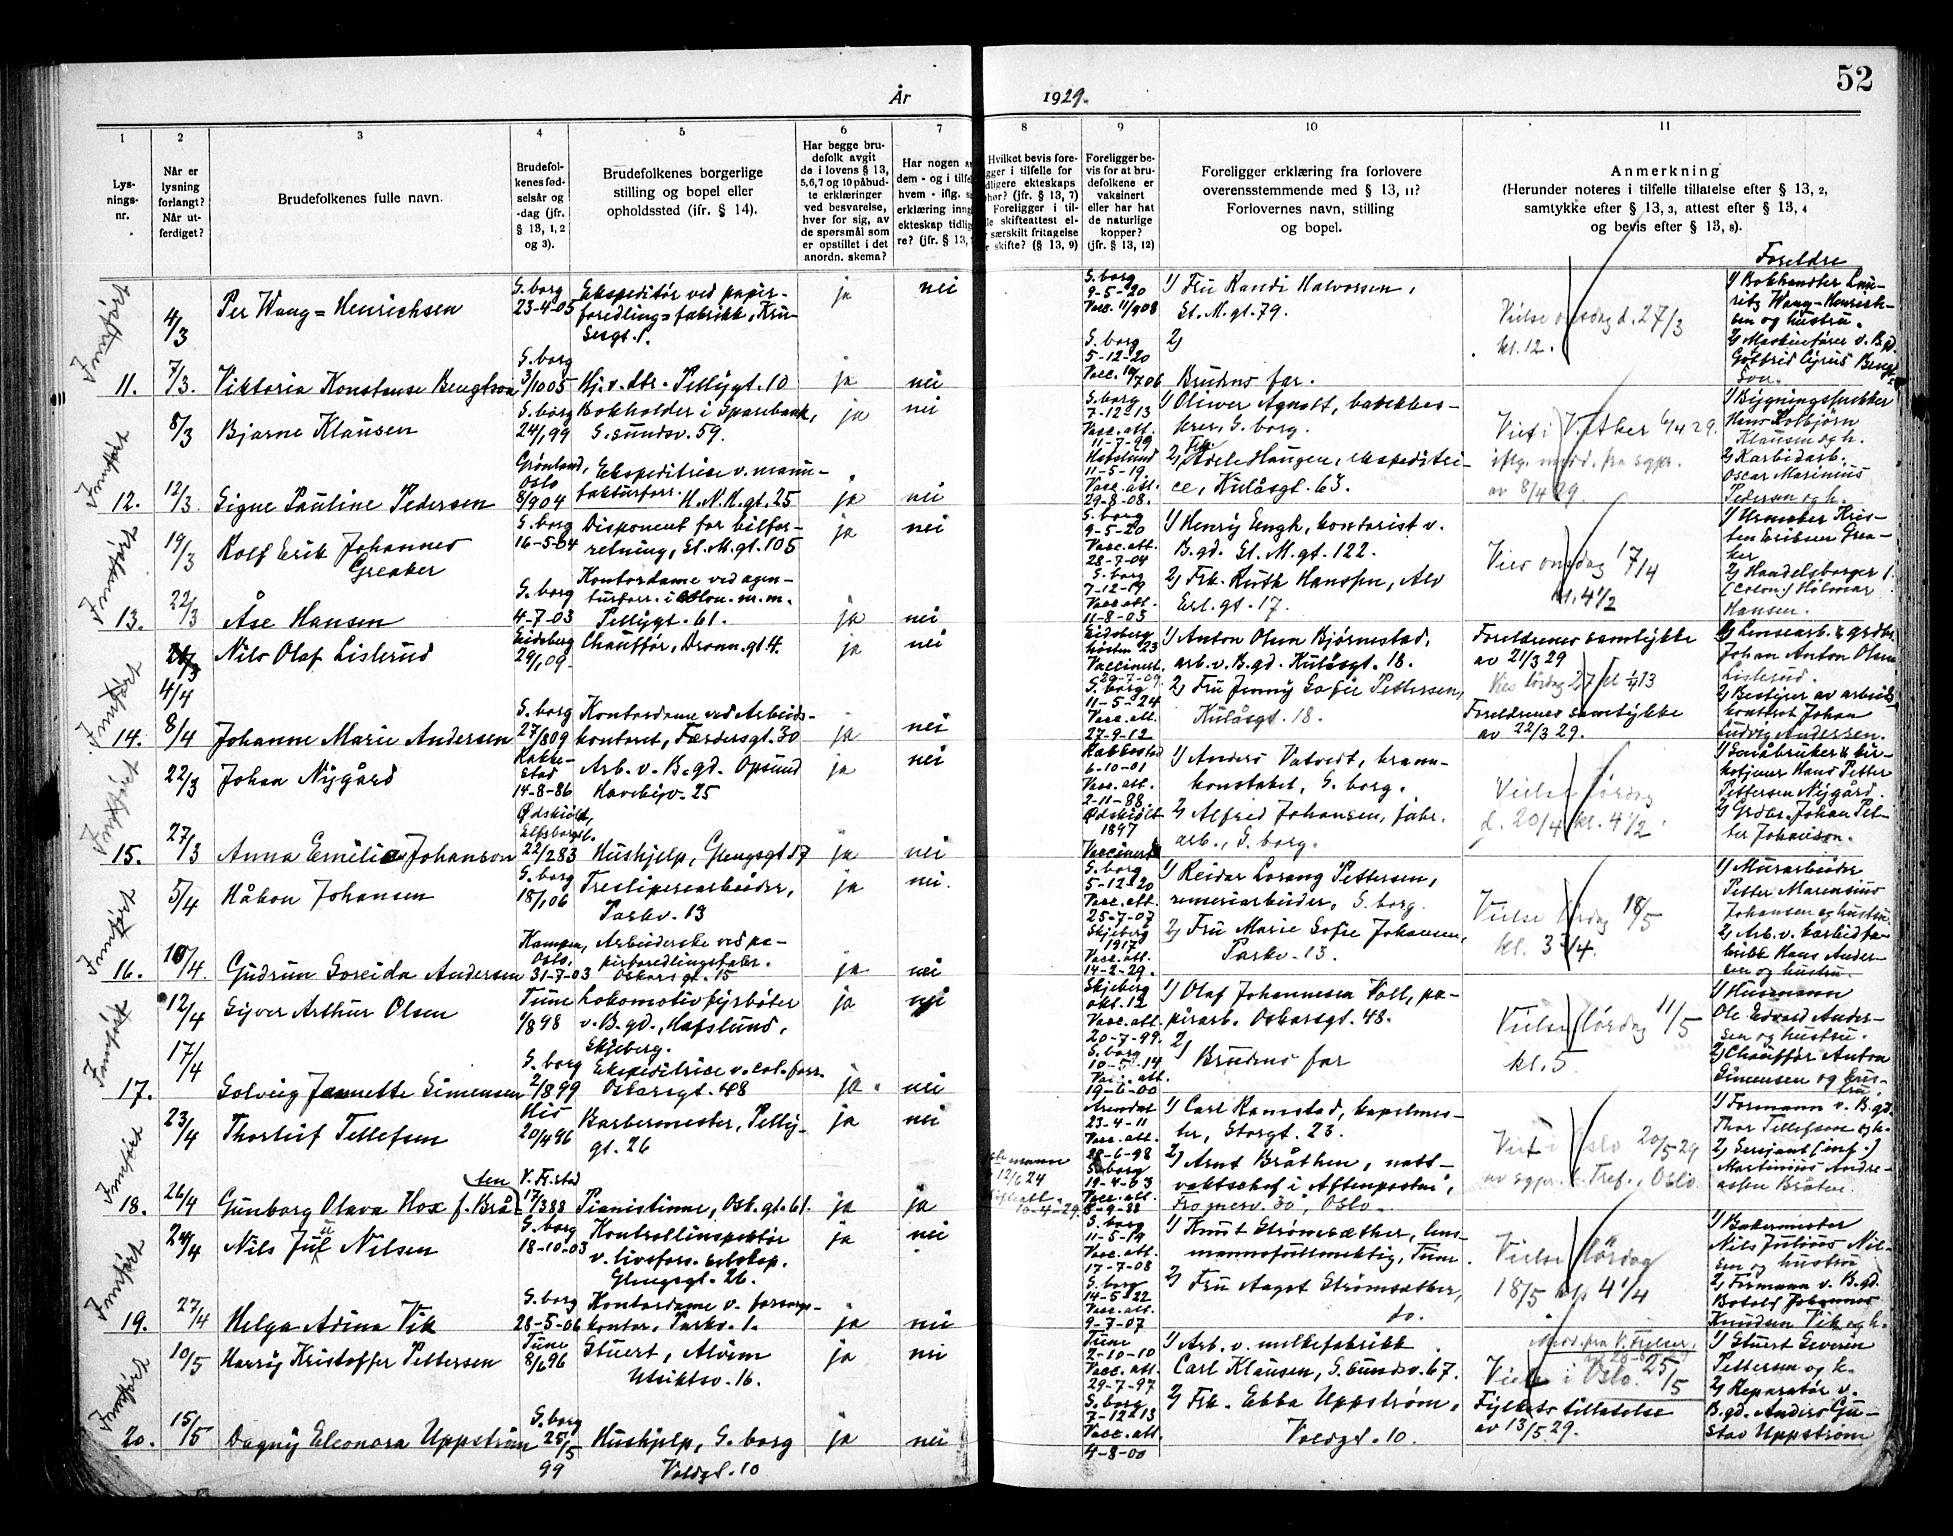 52
År 1929.
1 2 3 4 5 6 7 8 9 10 11
Lys-
nings-
nr.
Når er
lysning
forlangt?
Når ut-
ferdiget?
Brudefolkenes fulle navn.
Brudefol-
kenes fød-
selsår og
-dag (jfr.
§ 13, 1, 2
og 3).
Brudefolkenes borgerlige
stilling og bopel eller
opholdssted (ifr. § 14).
Har begge bru-
defolk avgit
de i lovens § 13,
5,6,7 og 10 påbud-
te erklæringer
ved besvarelse,
hver for sig, av
de spørsmål som
er opstillet i det
anordn. skema?
Har nogen a
dem - og i tilfe
hvem - iflg. s
erklæring inng
ekteskap tidlig
re? (jfr. § 13,
Hvilket bevis fore-
gger i tilfelle for
dligere ekteskaps
phør? (jfr. § 13, 7)
Foreligger i til-
le skifteattest el-
r særskilt fritagelse
r skifte? (§ 13, 9)
Foreligger be-
vis for at bru-
defolkene er
vaksinert
eller har hat
de naturlige
kopper?
(jfr. § 13, 12)
Foreligger erklæring fra forlovere
overensstemmende med § 13, 11?
Forlovernes navn, stilling
og bopel.
Anmerkning
(Herunder noteres i tilfelle tillatelse efter § 13, 2,
samtykke efter § 13, 3, attest efter § 13, 4
og bevis efter § 13, 8).
Foreldre
Innført
4/3
Per Wang=Henrichsen
S.borg
23-4-05
Ekspeditør ved papir-
foredling=fabrikk, Kru-
sesgt. 1.
ja
nei
S.borg
9-5-20
Vacc. 11/9 08
1) Fru Randi Halvorsen,
St. M. gt. 79.
Vielse onsdag d. 27/3
kl. 12.
1) Bokhandler Lau-
ritz Wang-Henrich-
sen og hustru.
11. 7/3.
Viktoria Konstanse Bengtson
S.borg
3/10 05
Hj. v. do. Pellygt. 10
ja
nei
S.borg
5-12-20
2)
Brudens far.
2) Maskinfører v. B.gd.
Gottfrid Cyrus Bengt-
son.
Innført
8/3
Bjarne Klausen
S.borg
24/1 99
Bokholder i Sparebank,
S.sundsv. 59.
ja
nei
S.borg
7-12-13
Vacc.att.
11-7-99
1) Oliver Agnalt, badebes-
tyrer, S.borg.
Viet i V. Aker 6/4 29.
iflg. medd. fra sgpr.
av 8/4 29.
1) Bygningssnekker
Hans Kolbjørn
Klausen og h.
12. 12/3.
Signe Pauline Pedersen
Grønland,
Oslo
8/9 04
Ekspeditrise v. manu-
fakturforr. H.N.H.gt. 25
ja
nei
Hafslund
11-5-19
Vacc.att.
29-8-08.
2) Frk. Adele Haugen, ekspeditri-
ce, Kulåsgt. 63.
2) Karbidarb.
Oscar Marinius
Pedersen og h.
Innført
19/3
Rolf Erik Johannes
Greaker
S.borg
16-5-04
Disponent for bilfor-
retning, St. M. gt. 105
ja
nei
S.borg
9-5-20
Vacc.att.
28-7-04
1) Henry Engh, kontorist v.
B.gd. St. M. gt. 122.
Vies onsdag 17/4
kl. 4 1/2
1) Urmaker Kris-
ten Eriksen Grea-
ker
13. 22/3
Åse Hansen
S.borg
4-7-03
Kontordame ved agen-
turforr. i kolon. m.m.
Pellygt. 61.
ja
nei
S.borg
7-12-19
Vacc.att.
11-8-03
2) Frk. Ruth Hansen, Alv
Erl. gt. 17.
2) Handelsborger
(colon.) Hilmar
Hansen.
Innført
4/4
Nils Olaf Listerud
Eidsberg
29/1 09.
Chauffør, Dronn. gt. 4.
ja
nei
Eidsberg
høsten 23
Vaccinert
29-7-09.
1) Anton Olsen Bjørnestad,
arb. v. B.gd. Kulåsgt. 18.
Foreldrenes samtykke
av 21/3 29
1) Lensearb. & grdbr.
Johan Anton Olsen
Listerud.
14. 8/4
Johanne Marie Andersen
S.borg
27/8 09
Kontordame ved Arbeids-
kontoret, Færdersgt. 30
ja
nei
S.borg
11-5-24
Vacc.att.
27-9-12
2) Fru Jenny Sofie Pettersen,
Kulåsgt. 18.
Foreldrenes samtykke
av 22/3 29.
2) Bestyrer av arbeids-
kontoret Johan
Ludvig Andersen.
Innført
22/3
Johan Nygård
Rakke-
stad
14-8-86
Arb. v. B.gd. Opsund
Havebyv. 25
ja
nei
Rakkestad
6-10-01
Vacc.att.
2-11-88.
1) Anders Vatvedt, brann-
konstabel, S.borg.
Vielse lørdag
d. 20/4 kl. 4 1/2
1) Småbruker & kir-
ketjener Hans Petter
Pettersen Nygård.
15. 27/3
Anna Emilie Johanson
Ødskiölt,
Elfsborgsl.
22/2 83
Hushjelp, Glengsgt 17
ja
nei
Ødskiölt
1897
Vaccinert
2) Alfred Johansen, fabr.
arb., S.borg.
2) Grdbr. Johan Pet-
ter Johanson.
Innført
5/4
Håkon Johansen
S.borg
18/1 06
Tresliperiarbeider,
Parkv. 13
ja
nei.
S.borg
5-12-20
Vacc.att.
25-7-07
1) Reidar Lorang Pettersen,
renseriarbeider, S.borg.
Vielse lørdag 18/5
kl. 3 3/4.
1) Murarbeider
Petter Marensius
Johansen og hustru.
16. 10/4.
Gudrun Soreida Andersen
Kampen,
Oslo,
31-7-03
Arbeiderske ved pa-
pirforedlingsfabr.
Oskarsgt. 15
ja
nei
Skjeberg
1917
Vacc.att.
14-2-29.
2) Fru Marie Sofie Johansen,
Parkv. 13.
2) Arb. v. karbidfa-
brikk Hans Ander-
sen og hustru.
Innført
12/4
Syver Arthur Olsen
Tune
1/8 98
Lokomotivfyrbøter
v. B.gd., Hafslund,
Skjeberg.
ja
nei
Skjeberg
okt. 12
Vacc.att.
20-7-99.
1) Olaf Johannesen Voll, pa-
pirarb. Oskarsgt. 48.
Vielse lørdag 11/5
kl. 5.
1) Husmann
Ole Edvard Ander-
sen og hustru.
17. 17/4
Solveig Jannette Simensen
S.borg
2/8 99
Ekspeditrise v. col. forr.
Oskarsgt. 48
ja.
nei
S.borg
10-5-14
Vacc. att.
19-6-00
2)
Brudens far
2) Chauffør Anton
Simensen og hus-
tru.
Innført
23/4
Thorleif Tellefsen
His
20/4 96
Barbermester, Pelly-
gt. 26
ja
nei
Arendal
23-4-11
Vacc.att.
28-6-98
1) Carl Ramstad, kapelmes-
ter, Storgt. 23.
Viet i Oslo 20/5 29
av sgpr. Tref., Oslo.
1) Formann v. B.gd.
Thor Tellefsen og h.
18. 26/4
Gunborg Olava Hox f. Brå-
ten
V. Fr.stad
17/3 88
Pianistinne, Osk. gt. 61.
ja
ja
mann
12/6 24
S.borg
19-4-03
Vacc.att.
8-9-88
2) Arnt Bråthen, natt-
vaktschef i Aftenposten,
Frognerv. 30, Oslo.
2) Sersjant (inf.)
Martinius Andre-
assen Bråten.
Innført
24/4
Nils Juul Nilsen
S.borg
18-10-03
Kontrollinspektør
v. livsfors. selskap.
Glengsgt. 26.
ja
nei
S.borg
11-5-19
Vacc.att.
17-7-08
1) Knut Strømsæther, lens-
mannsfullmektig, Tune
Vielse lørdag
18/5 kl 4 1/4
1) Bakermester
Nils Julius Nil-
sen og hustru
19. 27/4
Helga Arina Vik
S.borg
28-5-06
Kontordame v. forsorgs-
kontor, Parkv. 1.
ja
nei
S.borg
14-5-22
Vacc.att.
9-7-07
2) Fru Aagot Strømsæther,
do.
2) Formann v. B.gd.
Botolf Johannes
Knudsen Vik og h.
Innført
10/5
Harry Kristoffer Pettersen
Tune
8/6 96
Stuert, Alvim
Utsiktsv. 16.
ja
nei
Tune
2-10-10
Vacc. att.
29-7-97
1) Arb. v. mellefabrikk
Carl Klausen, S.sundsv. 67.
Medd. fra V. Frelser,
Viet i Oslo. 25/5
1) Stuert Severin
Pettersen og h.
20. 15/5
Dagny Eleonora Uppstrøm
S.borg
25/5
99
Hushjelp, S.borg
Voldgt. 10
ja
nei
S.borg
7-12-13
Vacc.att.
4-8-00
2) Frk. Ebba Uppstrøm,
Voldgt. 10.
Fylkets tillatelse
av 13/5 29.
2) Reparatør v.
B.gd. Anders Gu-
stav Uppstrøm